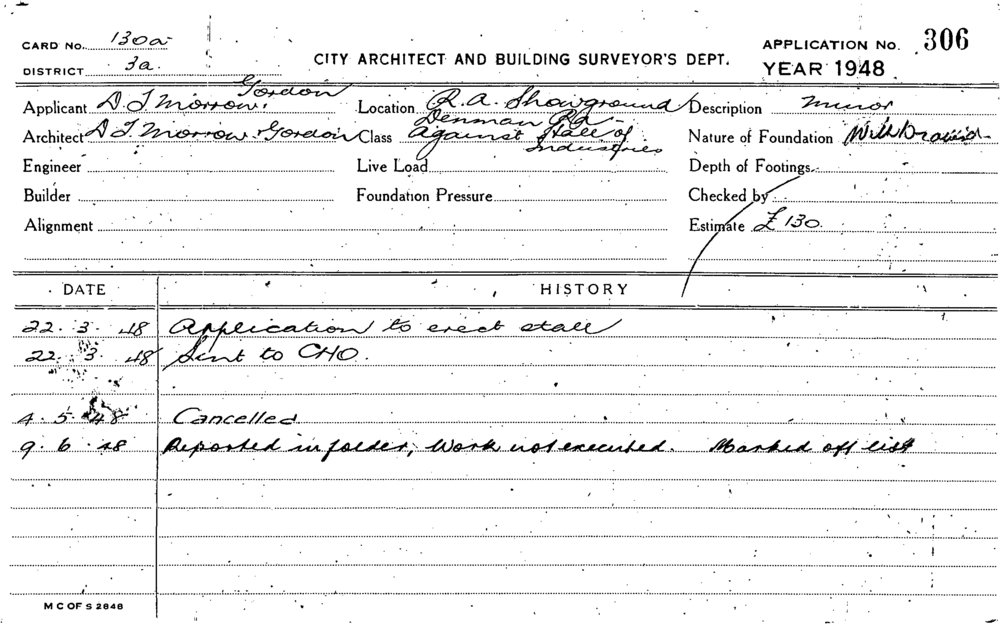 CARD No. 130a
DISTRICT 3a
CITY ARCHITECT AND BUILDING SURVEYOR'S DEPT.
APPLICATION No. 306
YEAR 1948
Applicant D. J. Morrow. Gordon
Location R.A. Showground
Denman Rd
Description Minor
Architect D J Morrow Gordon
Class against Hall of Industries
Nature of Foundation
Engineer
Live Load
Depth of Footings
Builder
Foundation Pressure
Checked by
Alignment
Estimate £130
DATE HISTORY
22. 3. 48 Application to erect stall
22. 3. 48 Sent to CHO.
4. 5. 48 Cancelled
9. 6. 48 Reported in folder, Work not executed. Marked off list
M C OF S 2848